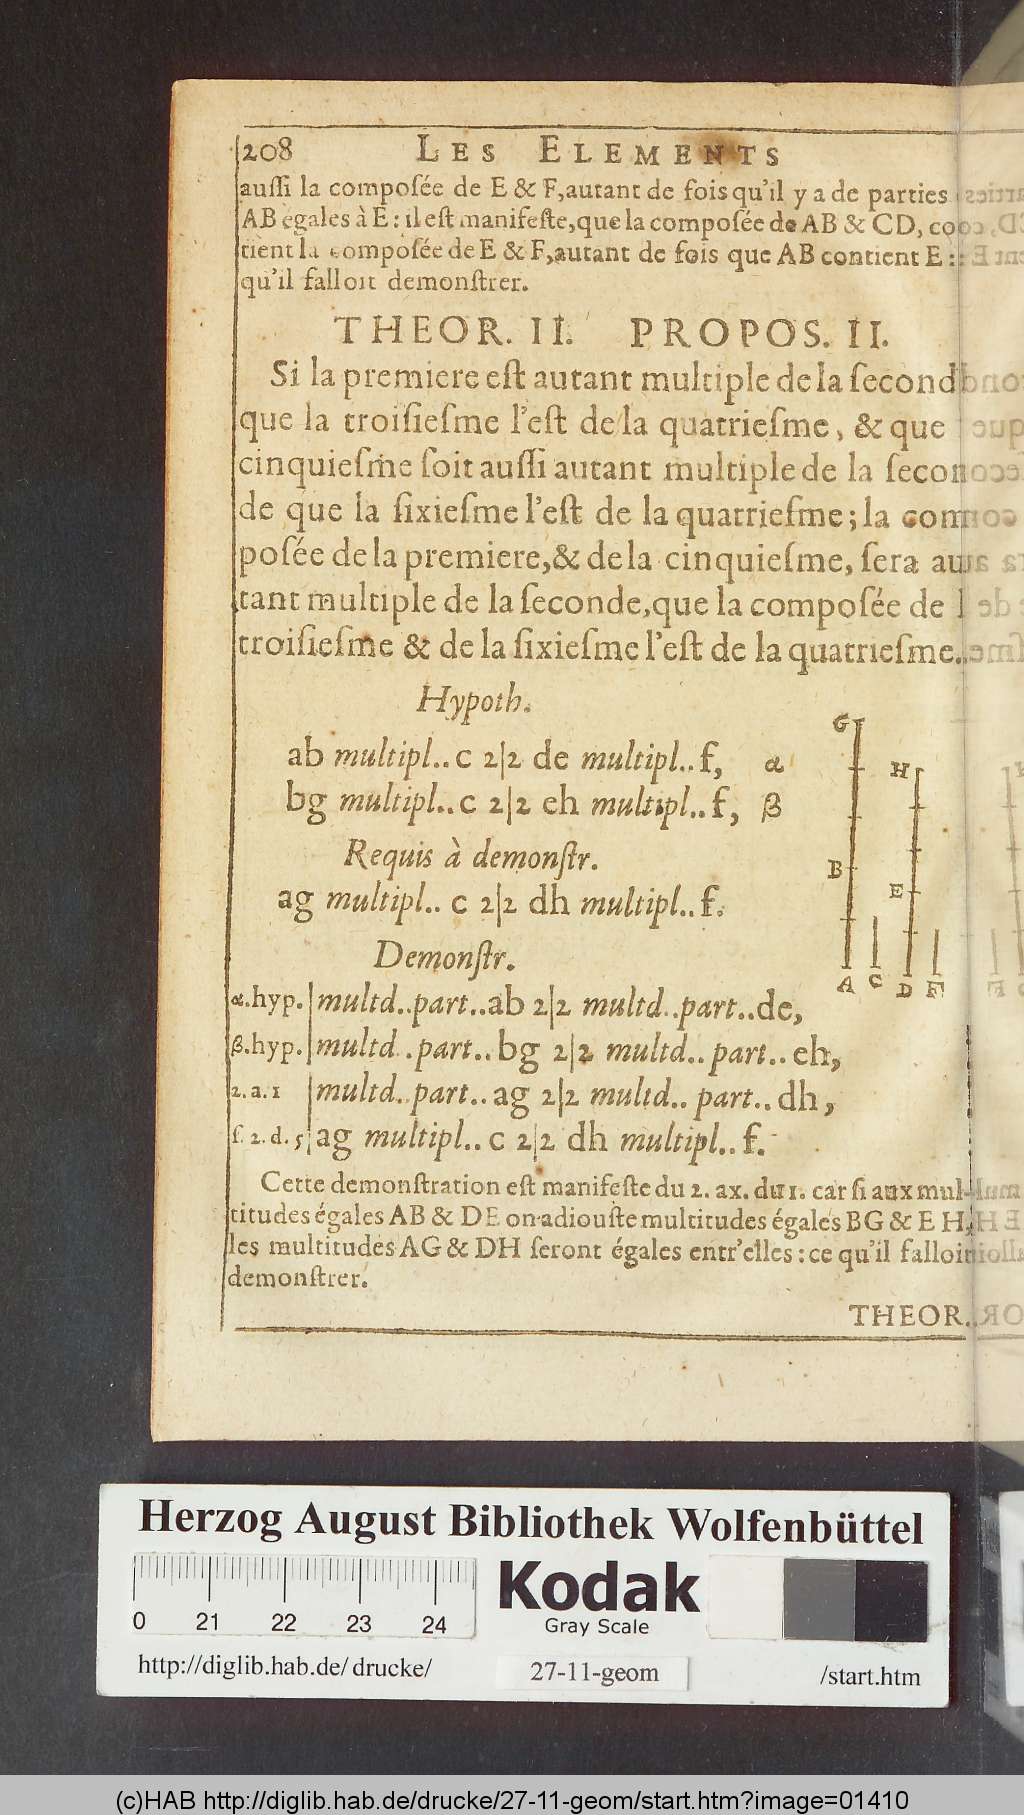 208 LES ELEMENTS
auſſi la compoſée de E & F, autant de fois qu'il y a de parties
AB égales à E: il eſt manifeſte, que la compoſée de AB & CD, con
tient la compoſée de E & F, autant de fois que AB contient E:
qu'il falloit demonſtrer.
THEOR. II. PROPOS. II.
Si la premiere eſt autant multiple de la ſecond
que la troiſieſme l'eſt de la quatrieſme, & que
cinquieſme ſoit auſſi autant multiple de la ſecon
de que la ſixieſme l'eſt de la quatrieſme; la com
poſée de la premiere, & de la cinquieſme, ſera au
tant multiple de la ſeconde, que la compoſée de l
troiſieſme & de la ſixieſme l'eſt de la quatrieſme.
Hypoth.
ab multipl.. c 2|2 de multipl.. f, α
bg multipl.. c 2|2 eh multipl.. f, β
Requis à demonſtr.
ag multipl.. c 2|2 dh multipl.. f.
Demonſtr.
α.hyp. | multd..part..ab 2|2 multd..part..de,
β.hyp. | multd..part..bg 2|2 multd..part..eh,
2.a.1 | multd..part..ag 2|2 multd..part..dh,
ſ.2.d.5 | ag multipl.. c 2|2 dh multipl.. f.
G
H
B
E
A C D F
Cette demonſtration eſt manifeſte du 2. ax. du 1. car ſi aux mul-
titudes égales AB & DE on adiouſte multitudes égales BG & EH,
les multitudes AG & DH ſeront égales entr'elles: ce qu'il falloit
demonſtrer.
THEOR.
Herzog August Bibliothek Wolfenbüttel
0 21 22 23 24
Kodak
Gray Scale
http://diglib.hab.de/drucke/ 27-11-geom /start.htm
(c)HAB http://diglib.hab.de/drucke/27-11-geom/start.htm?image=01410